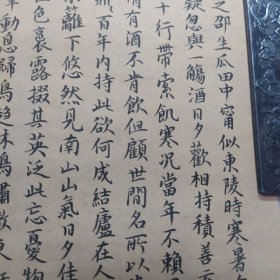 之邵生瓜田中甯似東陵時寒暑
疑忽與一觴酒日夕歡相持積善
十行帶索飢寒況當年不賴
情有酒不肯飲但顧世間名所以
鼎百年內持此欲何成結廬在人
東籬下悠然見南山山氣日夕佳
色裛露掇其英泛此忘憂物
動息歸鳥趨林鳴嘯傲東